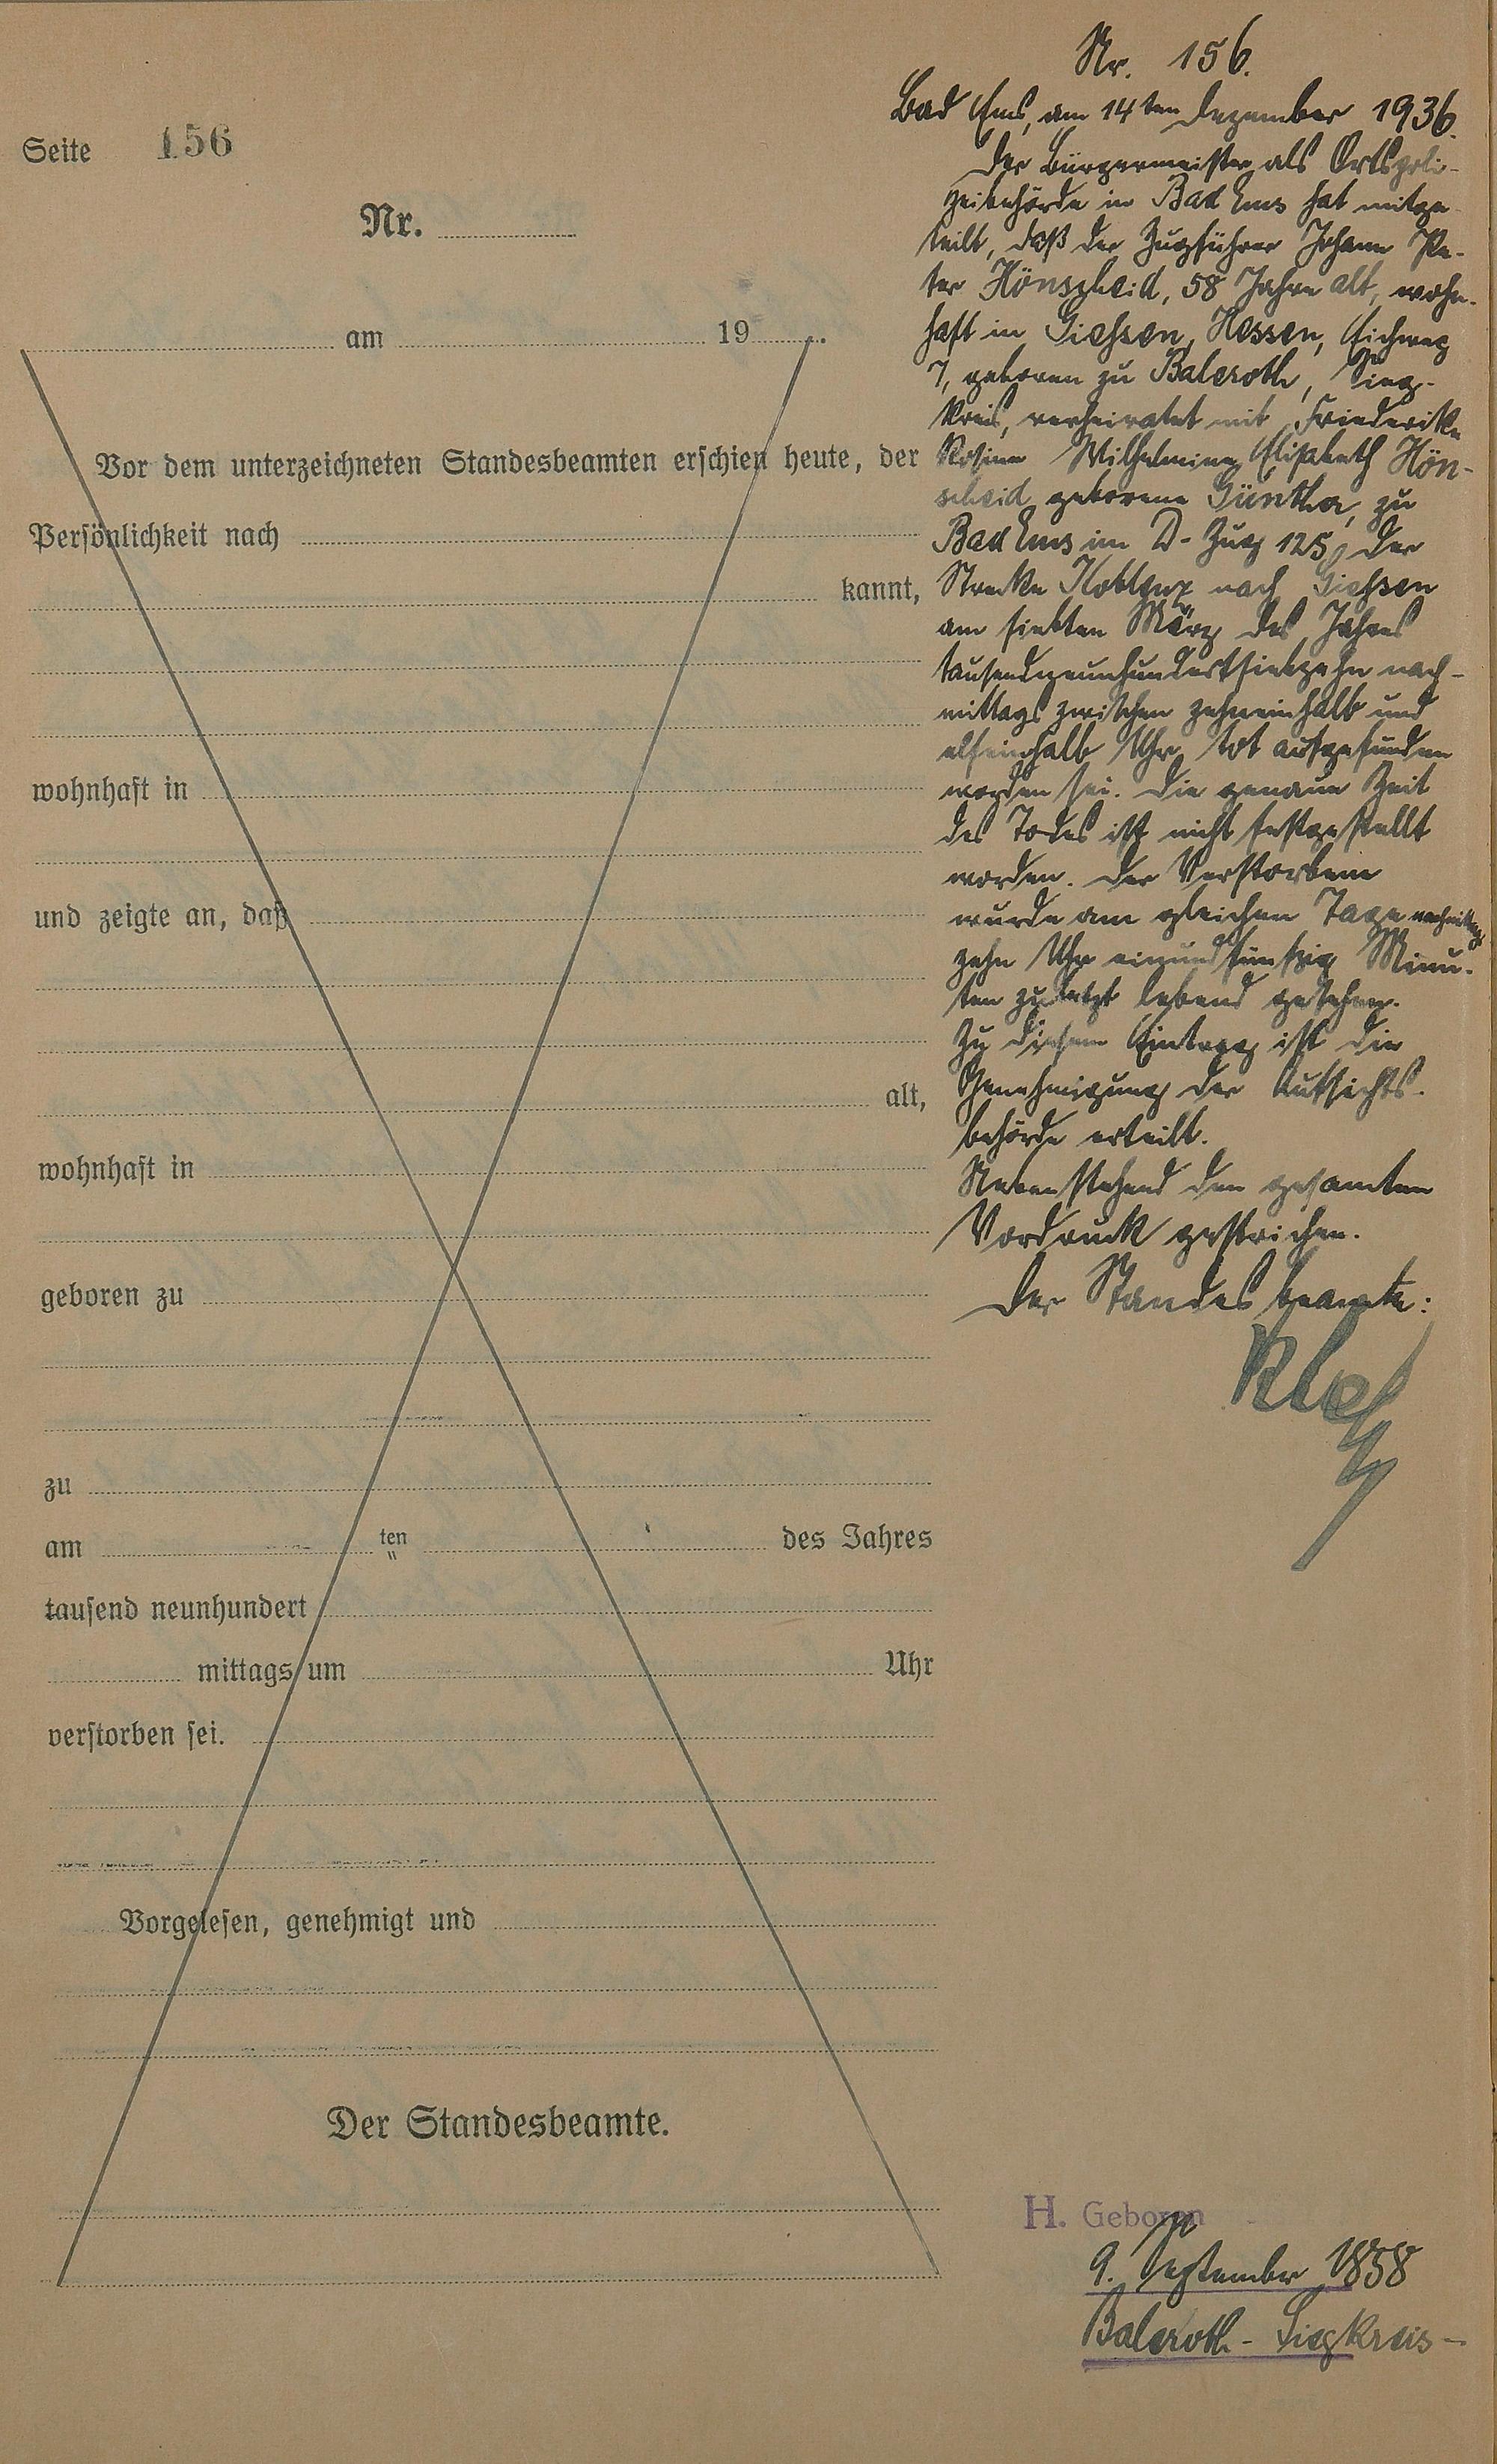 Seite 156
Nr.
am 19 .
Vor dem unterzeichneten Standesbeamten erschien heute, der
Persönlichkeit nach
kannt,
wohnhaft in
und zeigte an, daß
alt,
wohnhaft in
geboren zu
zu
am ten des Jahres
tausend neunhundert
mittags um Uhr
verstorben sei.
Vorgelesen, genehmigt und
Der Standesbeamte.
Nr. 156.
Bad Ems, am 14ten Dezember 1936.
Der Bürgermeister als Ortspoli-
zeibehörde in Bad Ems hat mitge-
teilt, daß der Zugführer Johann Pe-
ter Hönscheid, 58 Jahre alt, wohn-
haft in Giessen, Hessen, Eichweg
7, geboren zu Baleroth, Sieg-
kreis, verheiratet mit Friederike
Rosine Wilhelmine Elisabeth Hön-
scheid geborene Günther, zu
Bad Ems im D-Zug 125, der
Strecke Koblenz nach Giessen
am siebten März des Jahres
tausendneunhundertsiebzehn nach-
mittags zwischen zehneinhalb und
elfeinhalb Uhr tot aufgefunden
worden sei. Die genaue Zeit
des Todes ist nicht festgestellt
worden. Der Verstorbene
wurde am gleichen Tage nachmittags
zehn Uhr einundfünfzig Minu-
ten zuletzt lebend gesehen.
Zu diesem Eintrag ist die
Genehmigung der Aufsichts-
behörde erteilt.
Nebenstehend den gesamten
Vordruck gestrichen.
Der Standesbeamte:
H. Geboren
9. September 1858
Baleroth - Siegkreis -